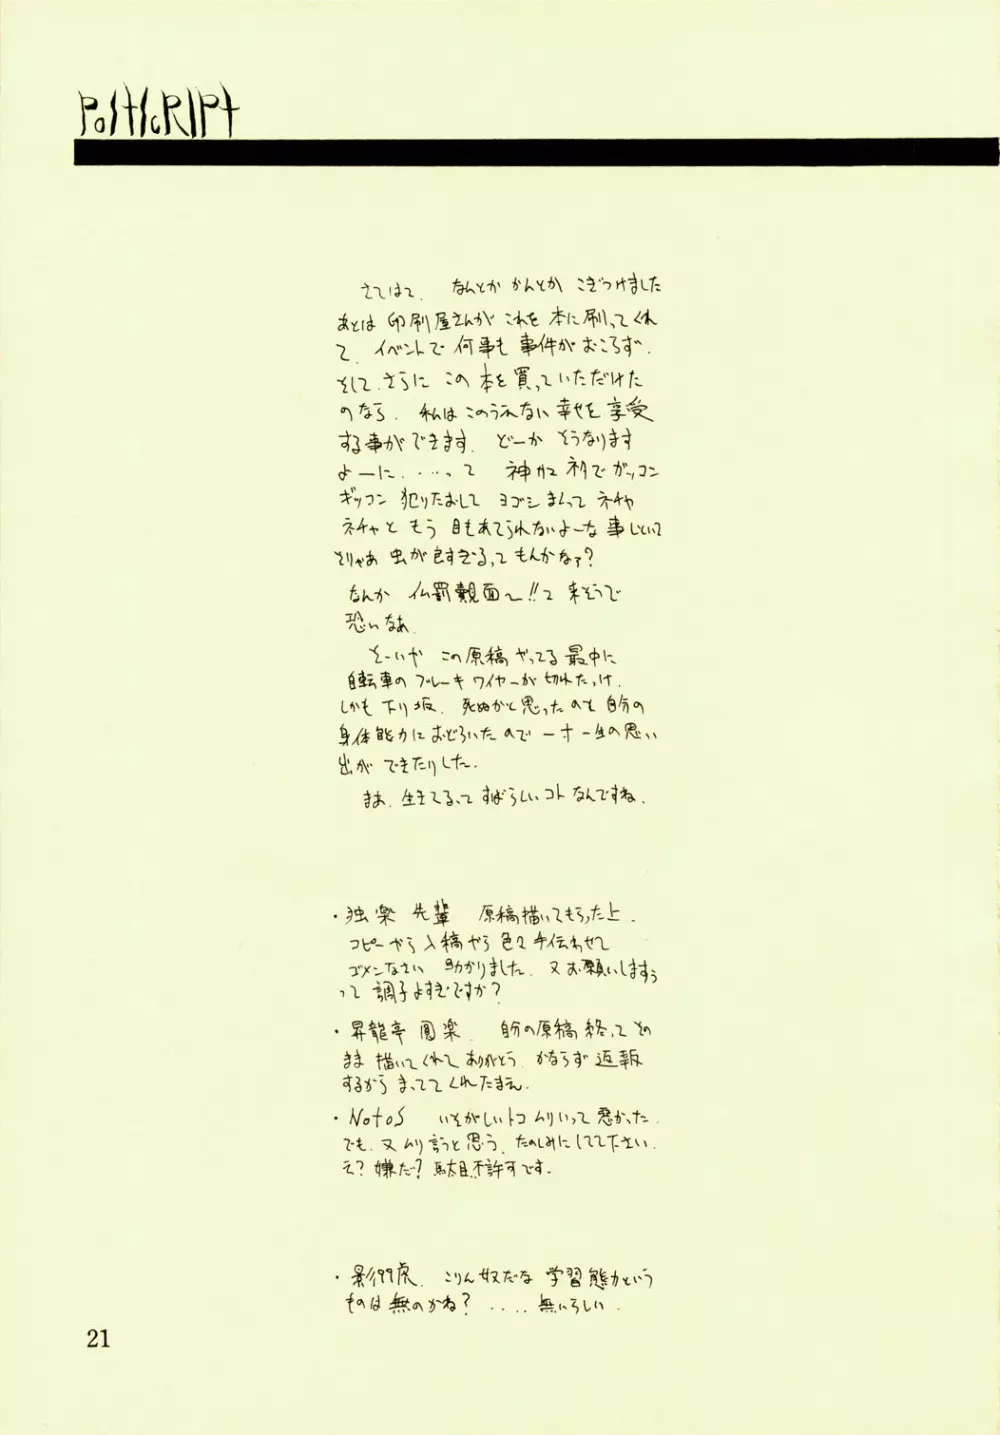 PoStScRIPt
さてはて、なんとか かんとか こぎつけました
あとは 印刷屋さんが これを 本に刷ってくれ
て、イベントで 何事も 事件が おこらず、
そして、さらに この 本を 買っていただけた
のなら、私は このうえない 幸せを 享受
する事ができます。どーか そうなります
よーに、・・・って 神かけ ネタで ガッコン
ギッコン 犯りたおして ヨゴシまくって ネチャ
ネチャと もう 目もあてられないよーな 事しといて
そりゃあ 虫が良すぎるってもんかなァ?
なんか 仏罰覿面〜!!と 来そうで
恐いなあ。
そーいや この原稿 やってる 最中に
自転車の ブレーキ ワイヤーが 切れたっけ、
しかも 下り坂、死ぬかと思ったのと 自分の
身体能力に おどろいたので 一寸 一生の思い
出が できたりした。
まあ、生きてるって すばらしいコト なんですね。
・独楽 先輩 原稿描いてもらった上、
コピーやら 入稿やら 色々 手伝わせて
ゴメンなさい 助かりました。又お願いしますぅ
って 調子よすぎですか?
・昇龍亭 圓楽、自分の原稿 終って その
まま 描いてくれて ありがとう。かならず 返報
するから まっててくれたまえ。
・NotoS いそがしいトコ ムリいって 悪かった。
でも、又 ムリ言うと思う、たのしみにしてて下さい。
え? 嫌だ? 駄目、不許可です。
・影99虎、こりん奴だな 学習能力という
ものは 無のかね? ・・・・ 無いらしい。
21